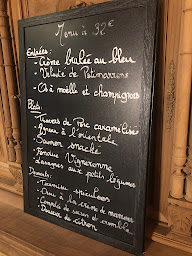 Menu à 32€
Entrées:
- Crème brulée au bleu
- Velouté de Potimarrons
- Os à moëlle et champignons
Plats:
- Travers de Porc caramélisés
- Agneau à l'orientale
- Saumon snacké
- Fondue Vigneronne
- Lasagnes aux petits légumes
Desserts:
- Tiramisu spéculoos
- à la crème de marrons
- Compote de saison et crumble
- Douceur de citron